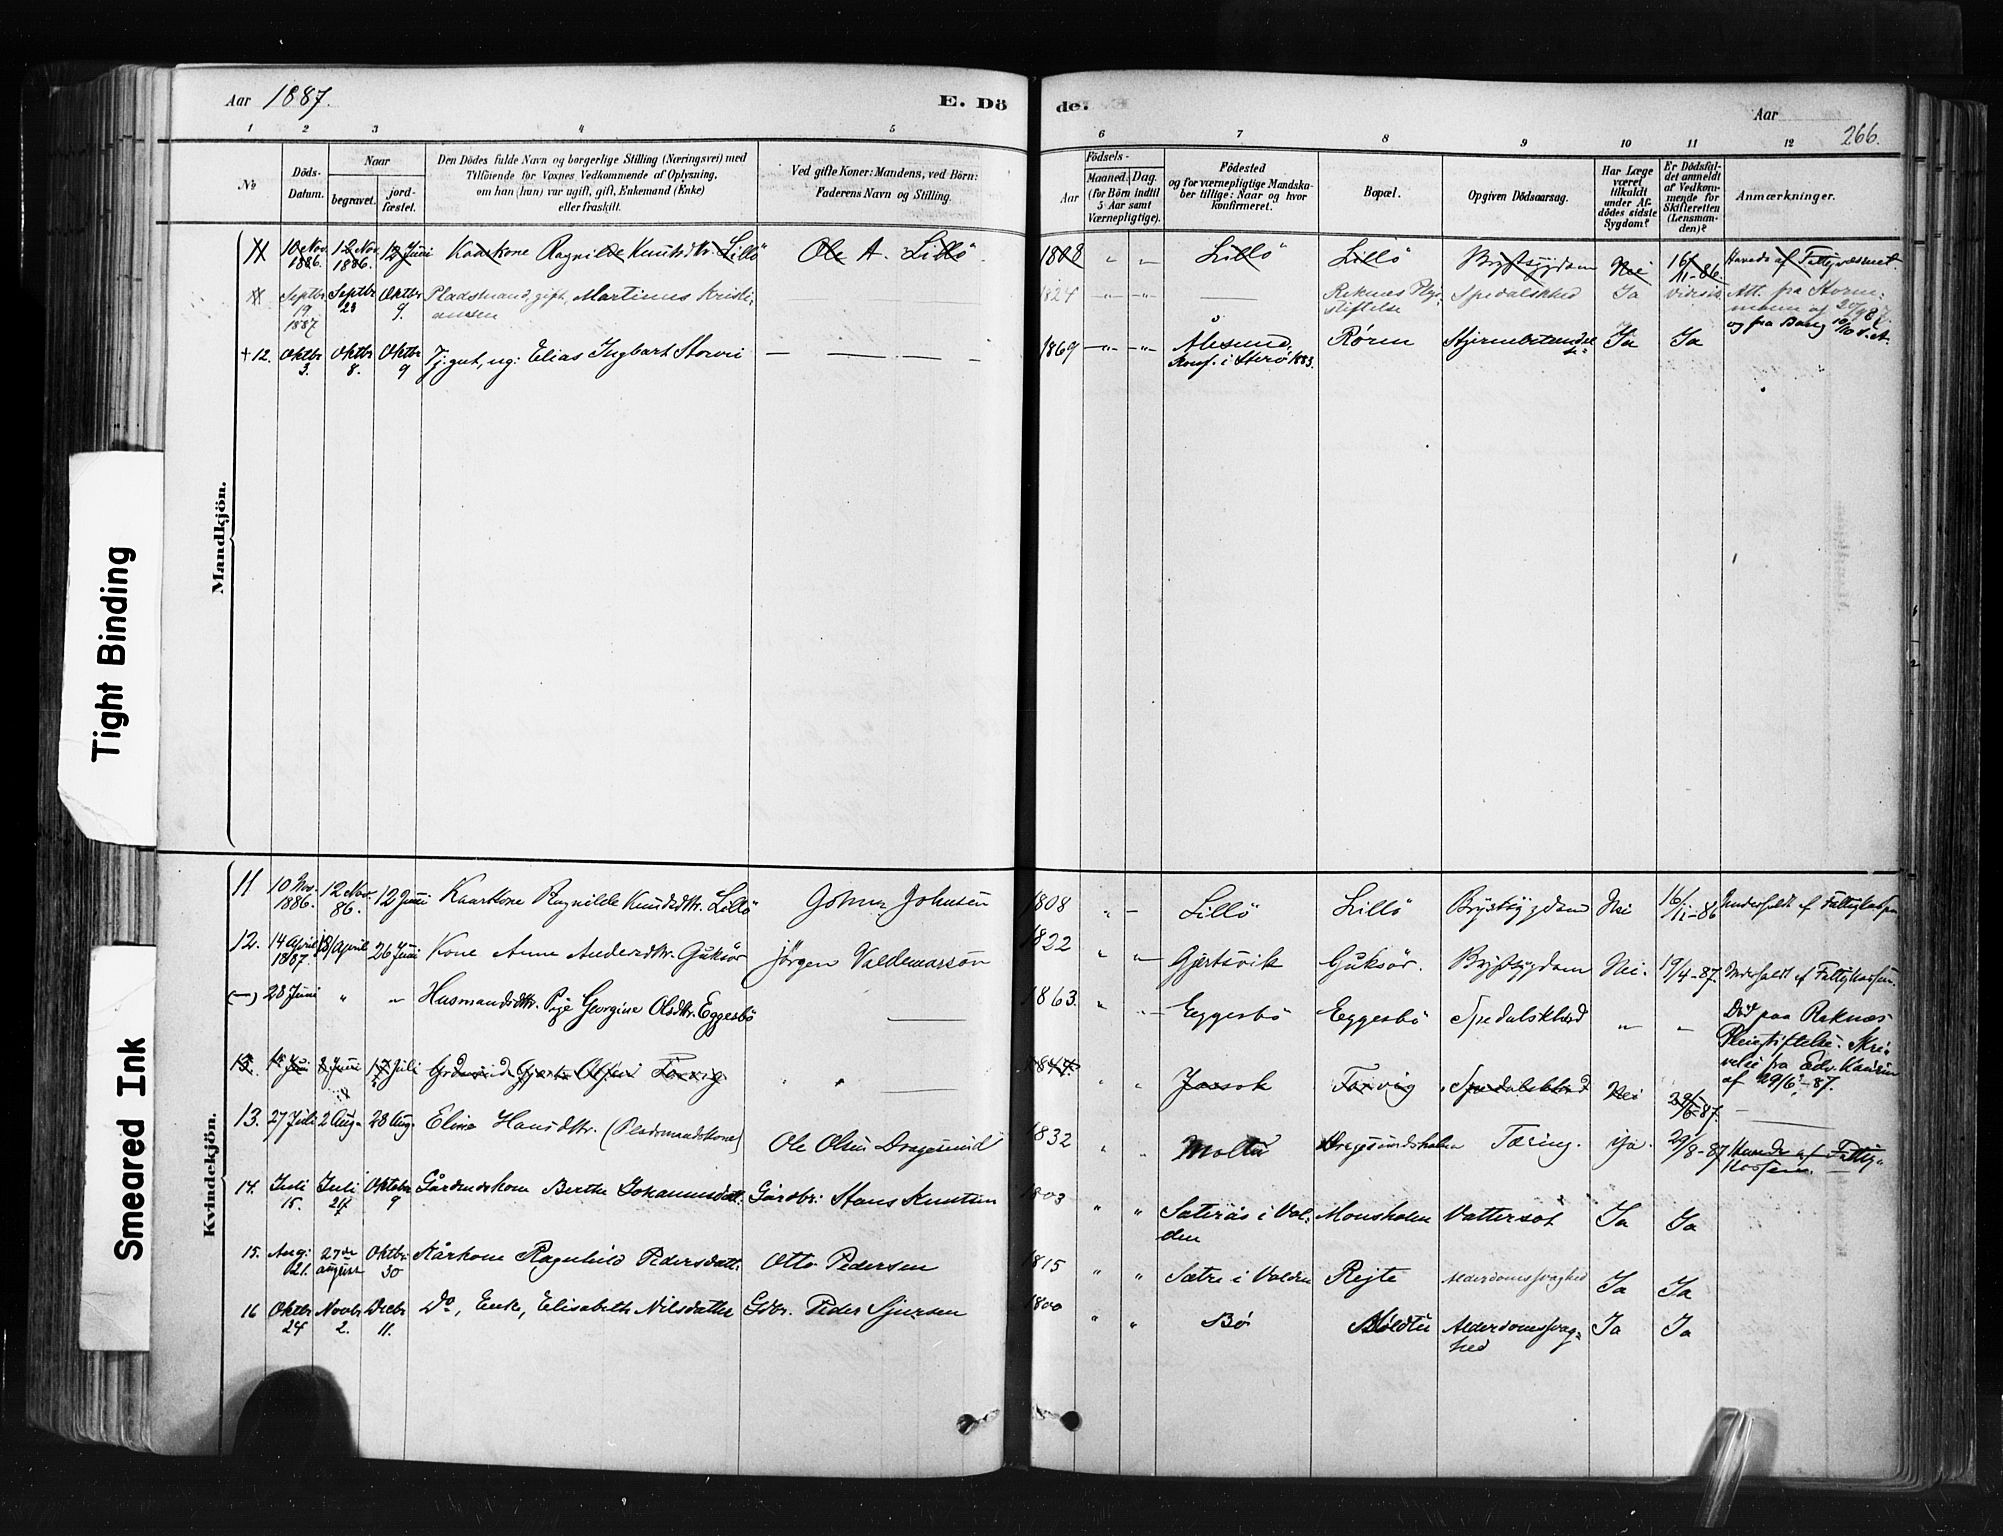 Aar 1887.
E. Döde.
Aar
266.
1 2 3 4 5 6 7 8 9 10 11 12
No
Döds-Datum.
Naar
begravet.
jord-fæstet.
Den Dödes fulde Navn og borgerlige Stilling (Næringsvei) med
Tilföiende for Voxnes Vedkommende af Oplysning,
om han (hun) var ugift, gift, Enkemand (Enke)
eller fraskilt.
Ved gifte Koner: Mandens, ved Börn:
Faderens Navn og Stilling.
Födsels-
Aar
Maaned. Dag.
(for Börn indtil
5 Aar samt
Værnepligtige).
Födested
og for værnepligtige Mandska-
ber tillige: Naar og hvor
konfirmeret.
Bopæl.
Opgiven Dödsaarsag.
Har Læge
været
tilkaldt
under Af-
dödes sidste
Sygdom?
Er Dödsfal-
det anmeldt
af Vedkom-
mende for
Skifteretten
(Lensman-
den)?
Anmærkninger.
Mandkjön.
11 10 Nov. 1886. 12 Nov. 1886. 12 Juni Kone Ragnilde Knutsdtr. Lillö Ole A. Lillö 1808 " — Lillö Lillö Brystsygdom Nei 16/11-86. Havede af Fattigvæsenet.
Septbr 19 1887 Septbr 23 Oktbr 9. Pladsmand, gift, Martinus Kristiansen 1824 —"— —"— — Reknæs Pleiestiftelse Spedalskhed Ja Att. fra
og fra
+ 12. Oktbr 3. Oktbr 8. Oktbr 9 gut, ug: Elias Ingbart Storvi — — — — 1869 —"— —"— Ålesund, Konf. i Herö 1883. Rörn Hjernebetændelse Ja Ja
Kvindekjön.
11 10 Nov. 1886. 12 Nov. 86. 12 Juni Kaarkone Ragnilde Knudsdtr. Lillö Johnsen 1808 " — Lillö Lillö Brystsygdom Nei 16/11-86 Underholdt af
12. 14 April 1887. 18/April 26 Juni Kone Anne Andersdtr. Guksör Jörgen Valdemarson 1822 " — Gjertsvik Guksör. Brystsygdom Nei. 19/4-87. Underholdt af Fattigkassen.
(—) 28 Juni " " Husmandsdtr. Pige Georgine Olsdtr. Eggesbö — 1863. " " Eggesbö Eggesbö Spedalskhed " " Död paa Reknæs
Pleiestiftelse. Skri-
velse fra Edv.
af 29/6-87.
13. Juni Juli Olsen " " — " " Spedalskhed Nei 29/6-87. —
13. 27 Juli 2 Aug. 28 Aug. Eline Hansdtr. (Pladsmandskone) Ole Olsen Dragesund 1832 " " Moltu Dragesundsholm Tæring. ja. 29/8-87 Havde af Fattig-
kassen.
14. Juli 15. Juli 24 Oktober 9 Gårdmdskone Berthe Johannesdatt. Gårdbr: Hans Knutsen 1803 " " Sæterås i Volden Monsholm Vattersot Ja Ja
15. Aug: 21. 27de august Oktbr: 30 Kårkone Ragnhild Pedersdatt: Otto Pedersen 1815 " " Sætre i Volden Rejte Alderdomssvaghed Ja Ja
16 Oktbr 24 Novbr 2. Decbr 11. Do, Enke, Elisabeth Nilsdatter Gdbr. Peder Sjursen 1800 " " Bø Moldtu Alderdomssvaghed Ja Ja
Tight Binding
Smeared Ink